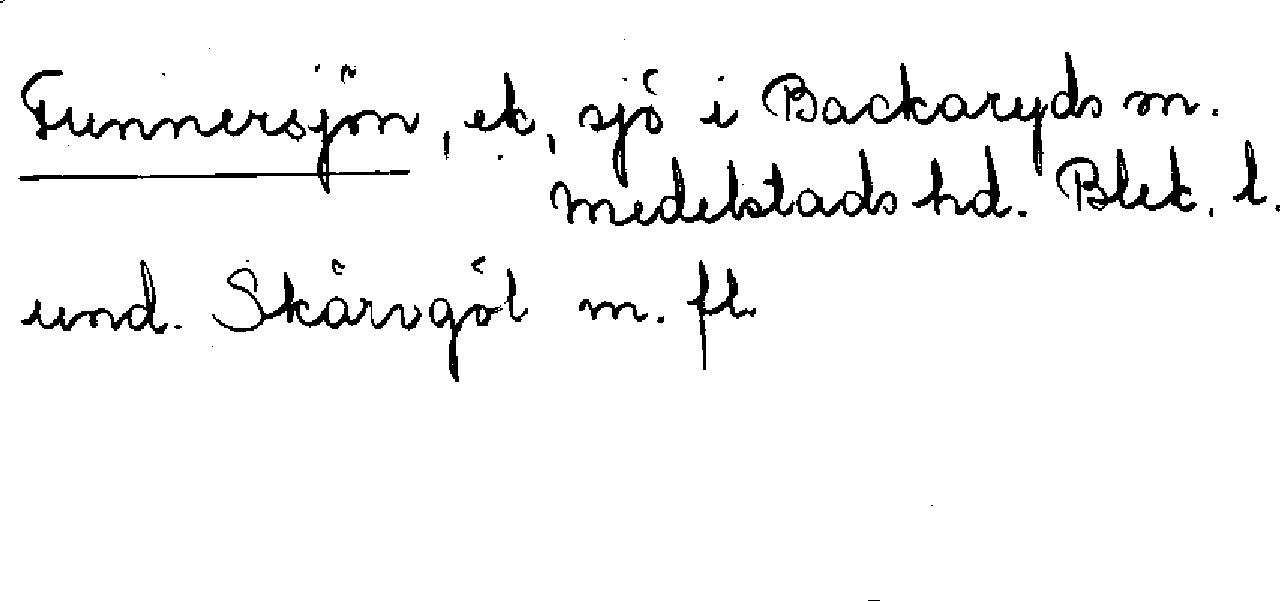 Tunnersjön, ek, sjö i Backaryds sn.
Medelstads hd. Blek. l.
und. Skärvgöl m. fl.